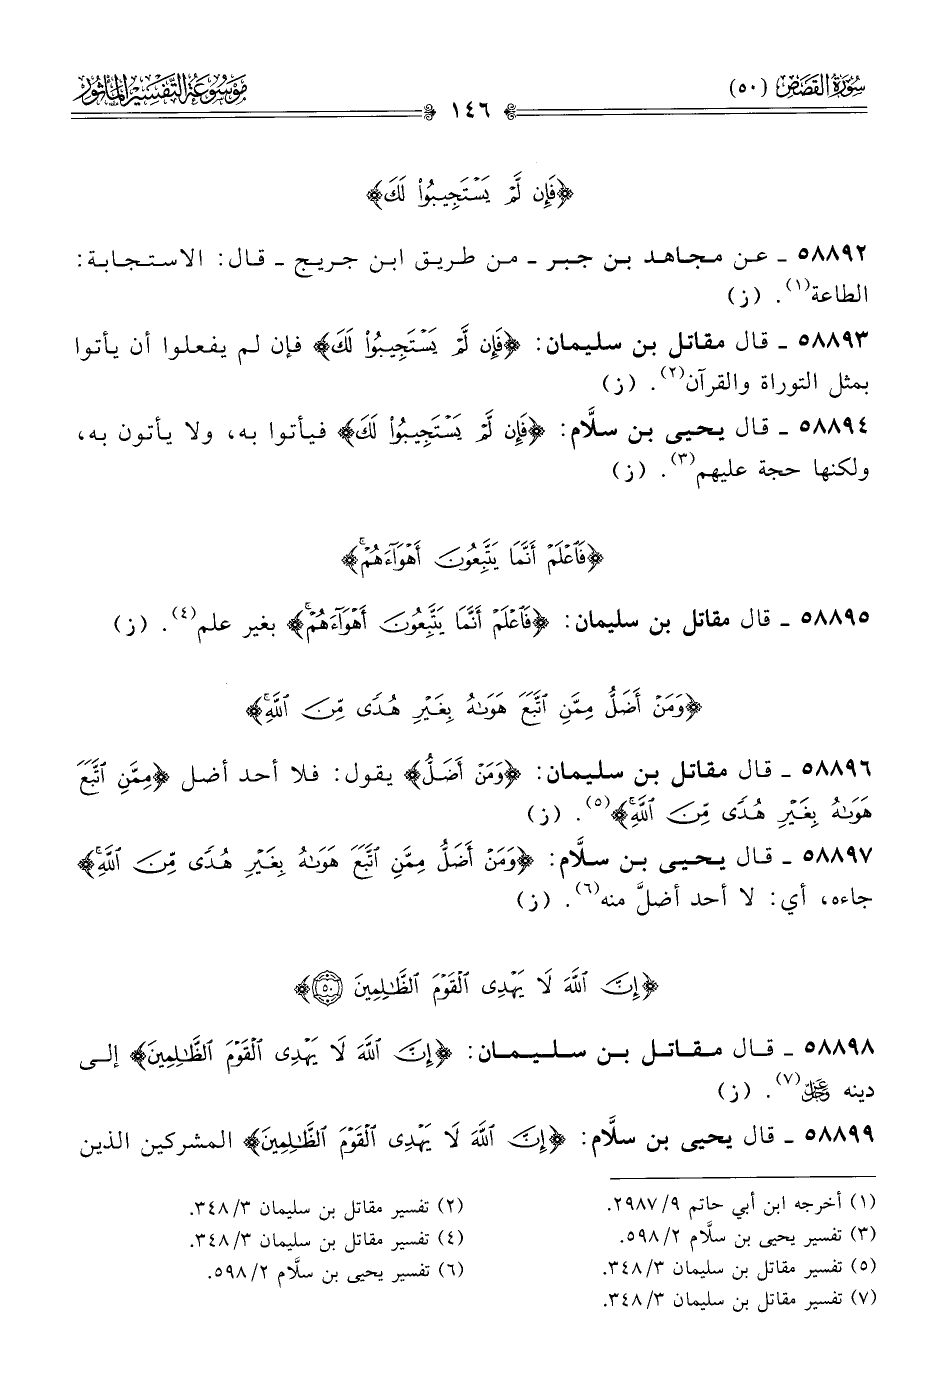 سُورَةُ القَصَصِ (٥٠)
١٤٦
مَوْسُوعَةُ التَّفْسِيرِ المَأْثُورِ
﴿فَإِن لَّمْ يَسْتَجِيبُوا۟ لَكَ﴾
٥٨٨٩٢ ـ عن مجاهد بن جبر ـ من طريق ابن جريج ـ قال: الاستجابة:
الطاعة(١). (ز)
٥٨٨٩٣ ـ قال مقاتل بن سليمان: ﴿فَإِن لَّمْ يَسْتَجِيبُوا۟ لَكَ﴾ فإن لم يفعلوا أن يأتوا
بمثل التوراة والقرآن(٢). (ز)
٥٨٨٩٤ ـ قال يحيى بن سلَّام: ﴿فَإِن لَّمْ يَسْتَجِيبُوا۟ لَكَ﴾ فيأتوا به، ولا يأتون به،
ولكنها حجة عليهم(٣). (ز)
﴿فَٱعْلَمْ أَنَّمَا يَتَّبِعُونَ أَهْوَآءَهُمْ ۚ﴾
٥٨٨٩٥ ـ قال مقاتل بن سليمان: ﴿فَٱعْلَمْ أَنَّمَا يَتَّبِعُونَ أَهْوَآءَهُمْ ۚ﴾ بغير علم(٤). (ز)
﴿وَمَنْ أَضَلُّ مِمَّنِ ٱتَّبَعَ هَوَىٰهُ بِغَيْرِ هُدًى مِّنَ ٱللَّهِ ۚ﴾
٥٨٨٩٦ ـ قال مقاتل بن سليمان: ﴿وَمَنْ أَضَلُّ﴾ يقول: فلا أحد أضل ﴿مِمَّنِ ٱتَّبَعَ
هَوَىٰهُ بِغَيْرِ هُدًى مِّنَ ٱللَّهِ ۚ﴾(٥). (ز)
٥٨٨٩٧ ـ قال يحيى بن سلَّام: ﴿وَمَنْ أَضَلُّ مِمَّنِ ٱتَّبَعَ هَوَىٰهُ بِغَيْرِ هُدًى مِّنَ ٱللَّهِ ۚ﴾
جاءه، أي: لا أحد أضلَّ منه(٦). (ز)
﴿إِنَّ ٱللَّهَ لَا يَهْدِى ٱلْقَوْمَ ٱلظَّـٰلِمِينَ ۝٥٠﴾
٥٨٨٩٨ ـ قال مقاتل بن سليمان: ﴿إِنَّ ٱللَّهَ لَا يَهْدِى ٱلْقَوْمَ ٱلظَّـٰلِمِينَ﴾ إلى
دينه عز وجل(٧). (ز)
٥٨٨٩٩ ـ قال يحيى بن سلَّام: ﴿إِنَّ ٱللَّهَ لَا يَهْدِى ٱلْقَوْمَ ٱلظَّـٰلِمِينَ﴾ المشركين الذين
(١) أخرجه ابن أبي حاتم ٩/ ٢٩٨٧.
(٢) تفسير مقاتل بن سليمان ٣/ ٣٤٨.
(٣) تفسير يحيى بن سلَّام ٢/ ٥٩٨.
(٤) تفسير مقاتل بن سليمان ٣/ ٣٤٨.
(٥) تفسير مقاتل بن سليمان ٣/ ٣٤٨.
(٦) تفسير يحيى بن سلَّام ٢/ ٥٩٨.
(٧) تفسير مقاتل بن سليمان ٣/ ٣٤٨.